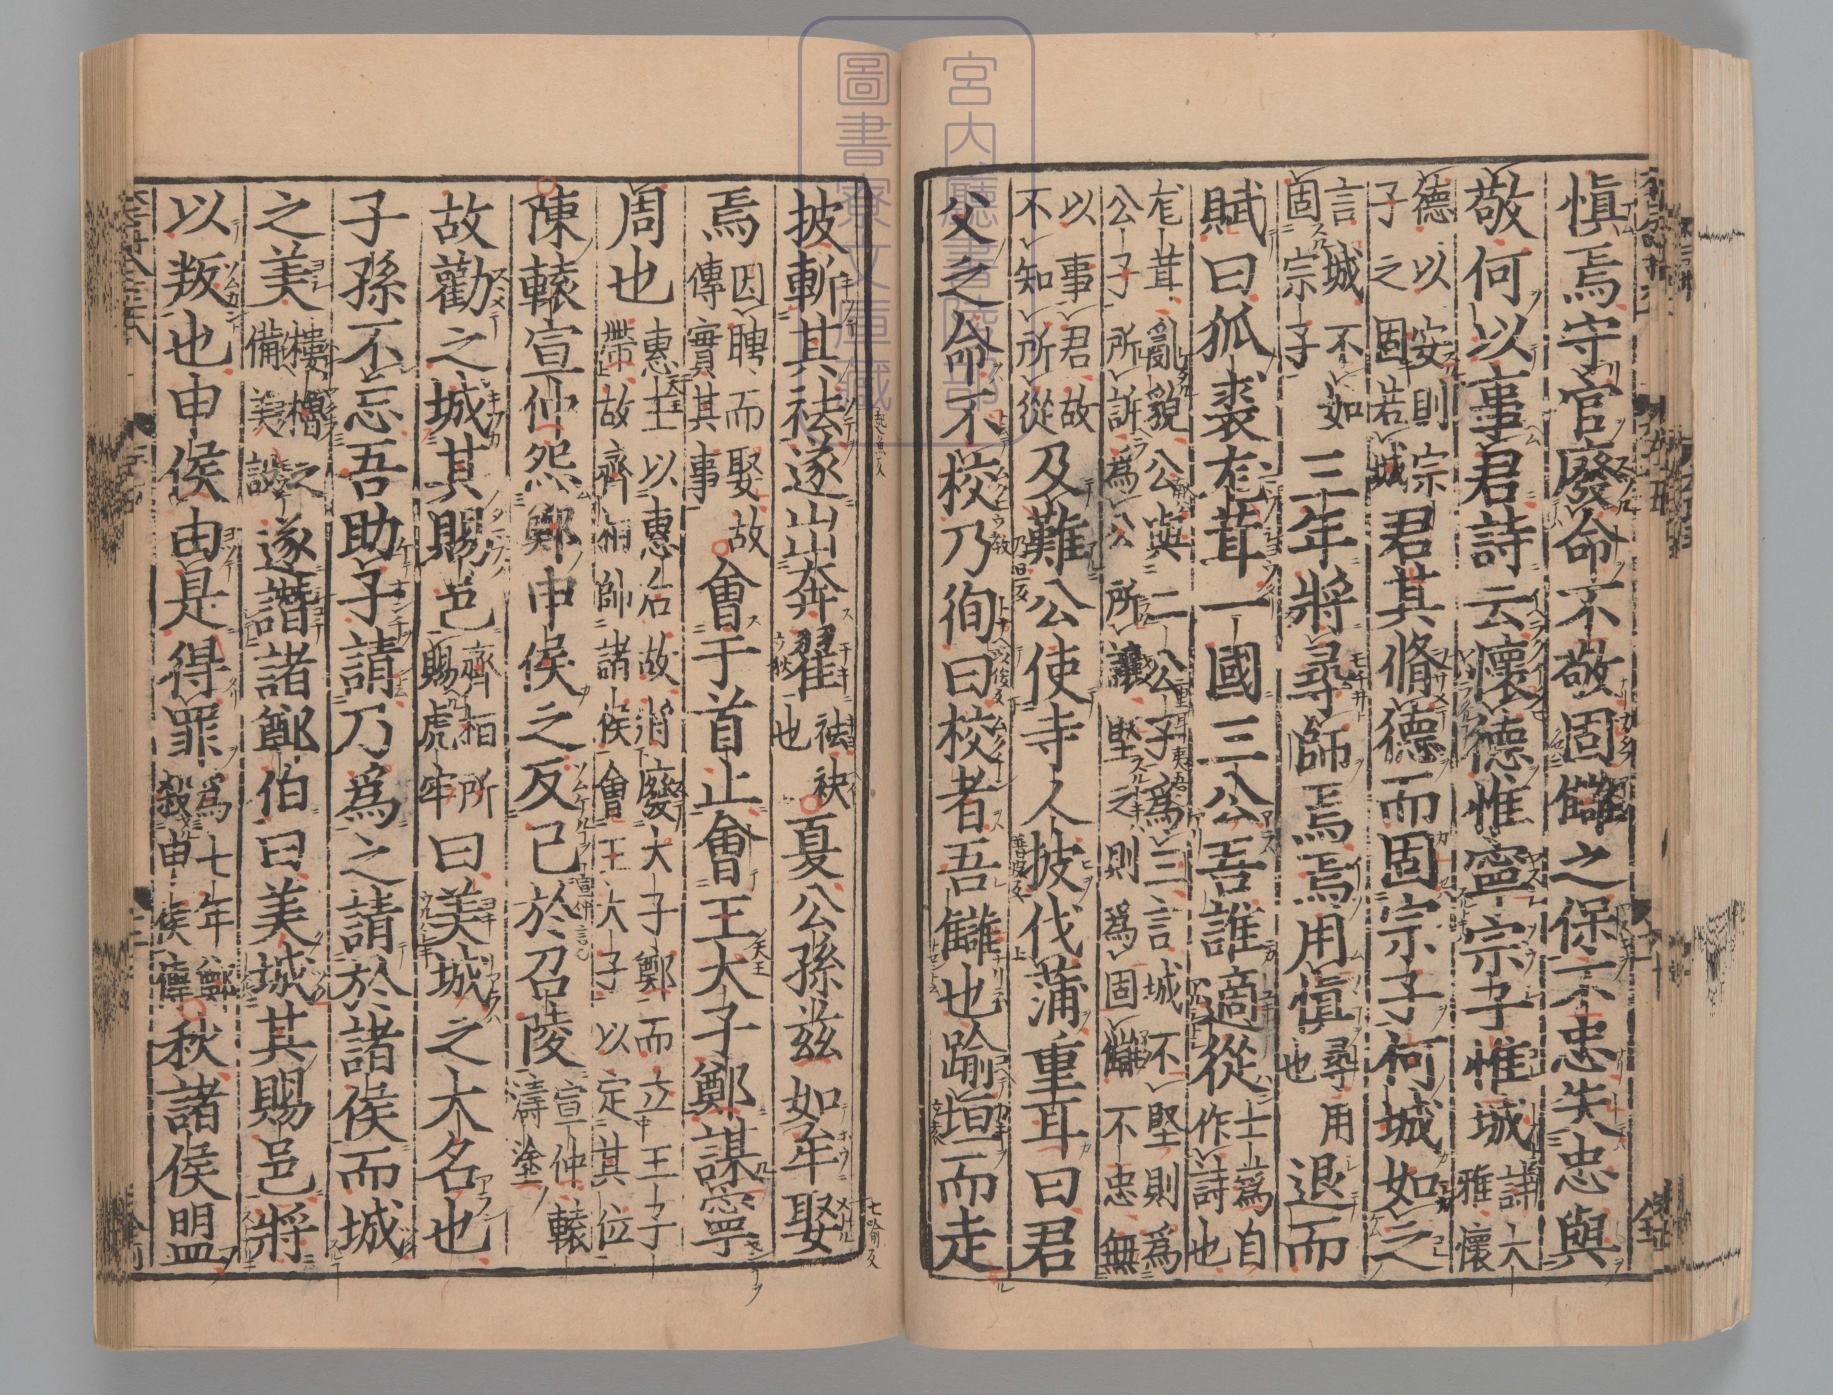 愼焉守官廢命不敬固讎之保不忠失忠與
敬何以事君詩云懷德惟寧宗子惟城詩大雅懷
德以安則宗子之固若城君其脩德而固宗子何城如之
三年將尋師焉焉用愼尋用也退而
言城不如固宗子
賦曰狐裘尨茸一國三公吾誰適從士蒍自作詩也
尨茸亂貌公與二公子爲三言城不堅則爲公子所訴爲公所讓堅之則爲固讎不忠無
以事君故不知所從及難公使寺人披伐蒲重耳曰君
父之命不校乃徇曰校者吾讎也踰垣而走
披斬其袪遂出奔翟袪袂也夏公孫茲如牟娶
焉因聘而娶故傳實其事會于首止會王大子鄭謀寧
周也惠王以惠后故將廢大子鄭而立王子帶故齊桓帥諸侯會王大子以定其位
陳轅宣仲怨鄭申侯之反己於召陵宣仲轅濤塗
故勸之城其賜邑齊桓所賜虎牢曰美城之大名也
子孫不忘吾助子請乃爲之請於諸侯而城
之美樓櫓之備美設遂譖諸鄭伯曰美城其賜邑將
以叛也申侯由是得罪爲七年鄭殺申侯傳秋諸侯盟
宮内廳書陵部
圖書寮文庫藏